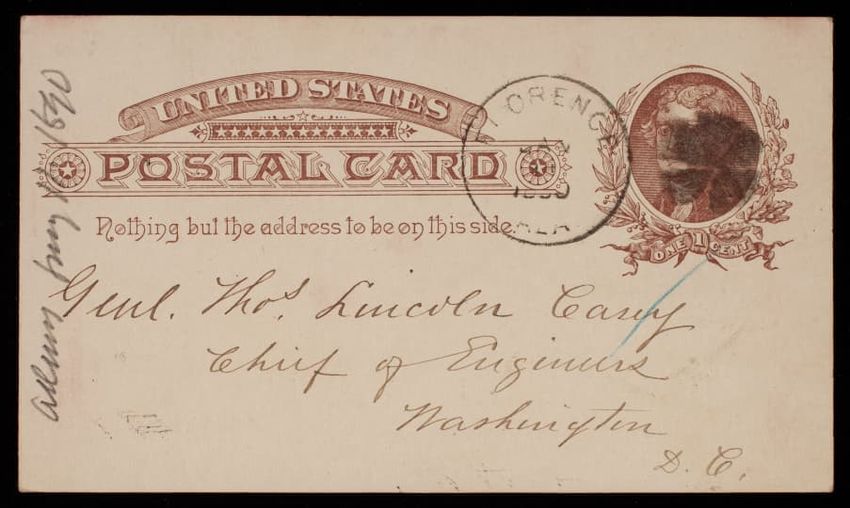 UNITED STATES
POSTAL CARD
Nothing but the address to be on this side.
FLORENCE
JAN
1890
ALA
ONE 1 CENT
Genl. Thos. Lincoln Casey
Chief of Engineers
Washington
D. C.
1890